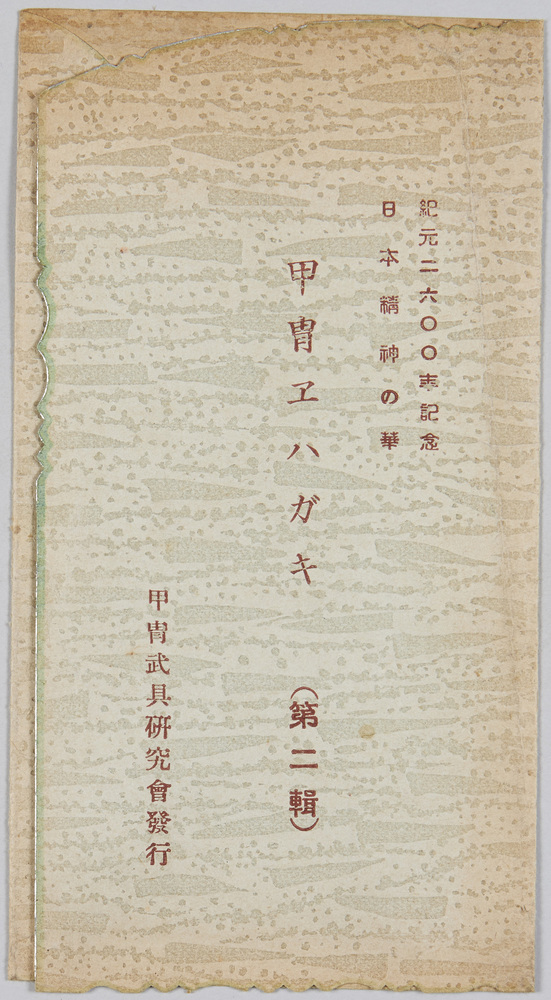 紀元二六〇〇年記念
日本精神の華
甲冑ヱハガキ（第二輯）
甲冑武具研究會發行